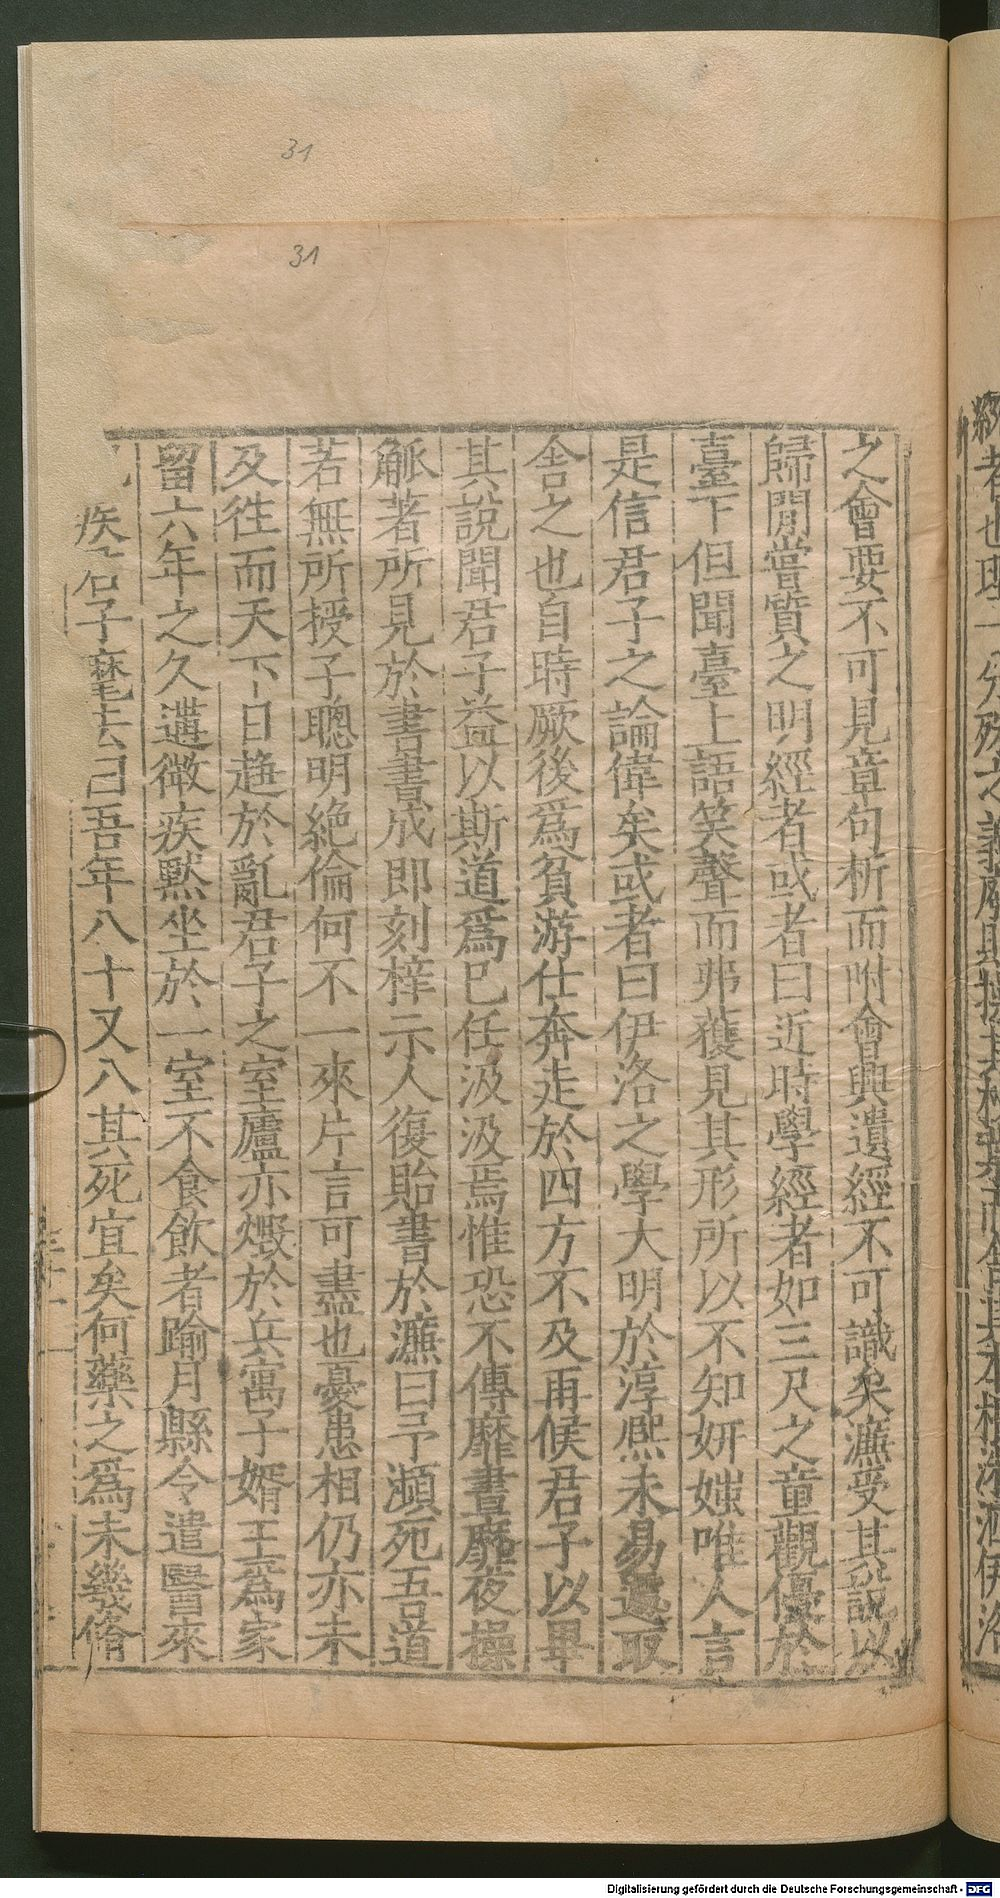 31
31
之會要不可見章句析而附會興遺經不可識矣濂受其説以
歸間嘗質之明經者或者曰近時學經者如三尺之童觀優於
臺下但聞臺上語笑聲而弗獲見其形所以不知妍媸唯人言
是信君子之論偉矣或者曰伊洛之學大明於淳熙未易遽取
舍之也自時厥後爲貧游仕奔走於四方不及再候君子以畢
其説聞君子益以斯道爲己任汲汲焉惟恐不傳靡晝靡夜操
觚著所見於書書成即刻梓示人復貽書於濂曰予瀕死吾道
若無所授子聰明絶倫何不一來片言可盡也憂患相仍亦未
及徃而天下日趍於亂君子之室廬亦燬於兵寓子婿王爲家
留六年之久遘微疾黙坐於一室不食飲者踰月縣令遣醫來
疾君子麾去曰吾年八十又八其死宜矣何藥之爲未幾脩
三十一
Digitalisierung gefördert durch die Deutsche Forschungsgemeinschaft - DFG